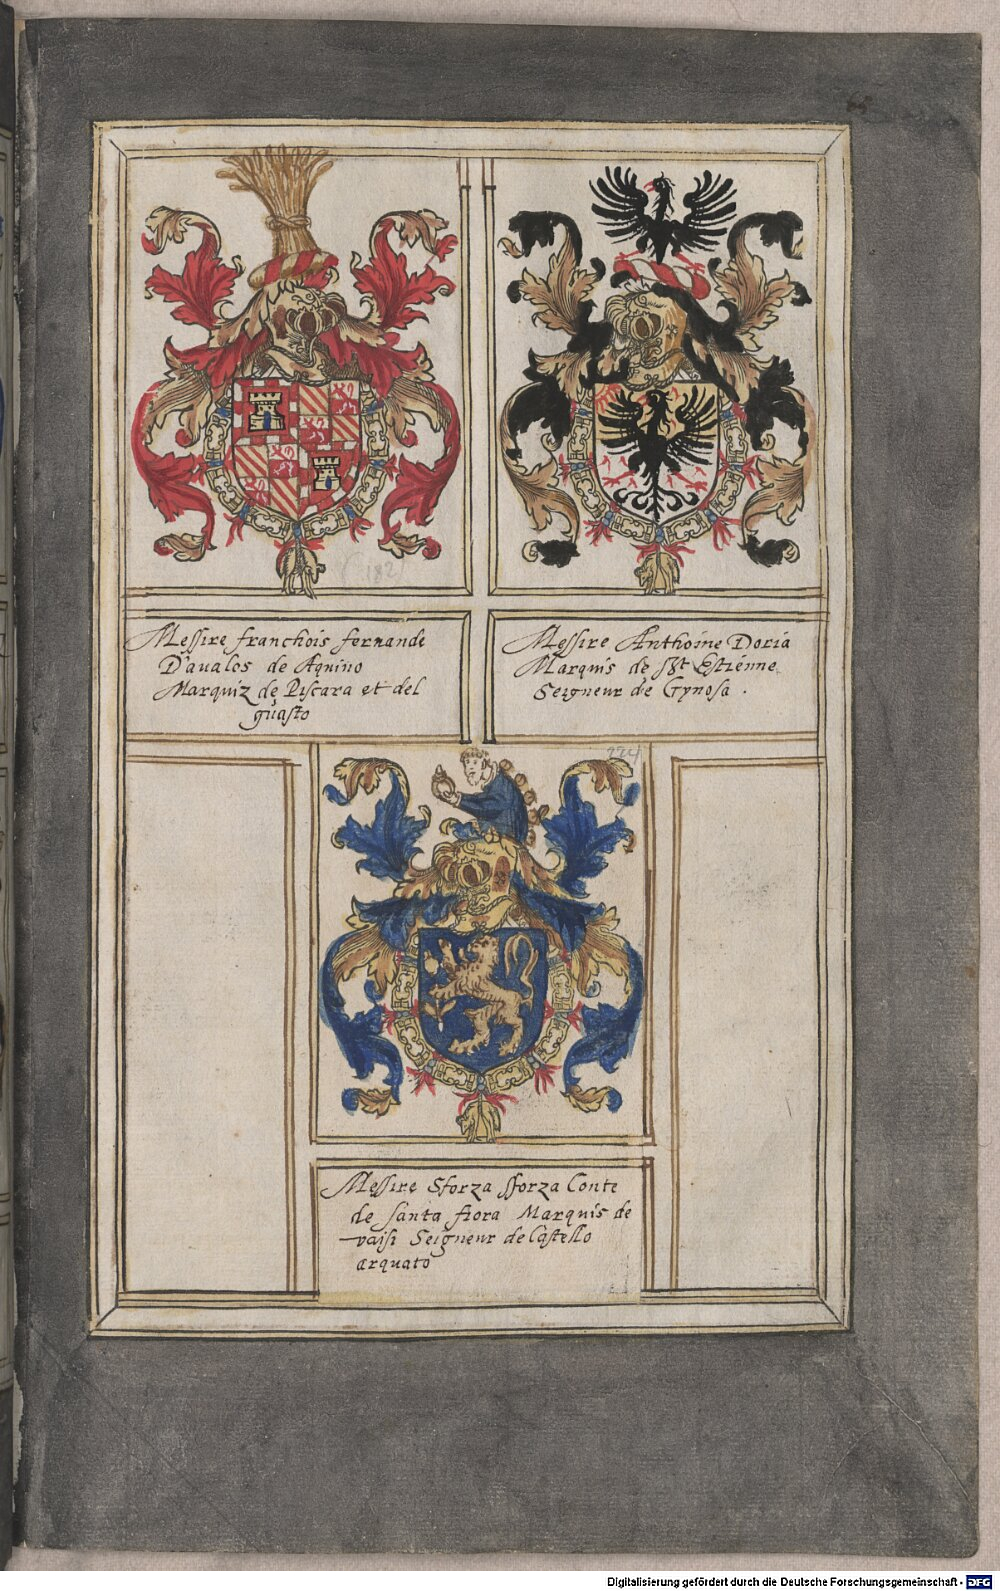 (182)
Messire franchois fernande
D'aualos de Aquino
Marquiz de Piscara et del
guasto
Messire Anthoine Doria
Marquis de st Estienne
Seigneur de Gynosa .
224
Messire Sforza sforza Conte
de santa fiora Marquis de
vaisi Seigneur de Castello
arquato
Digitalisierung gefördert durch die Deutsche Forschungsgemeinschaft - DFG